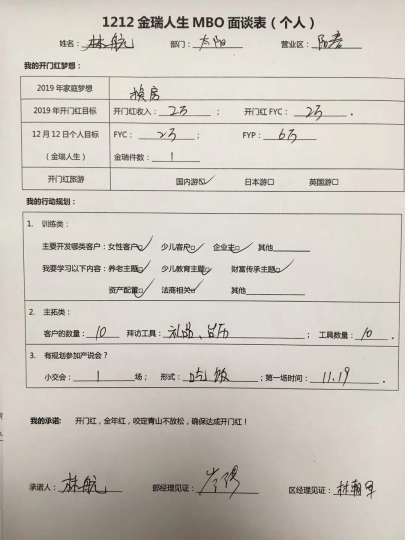 1212 金瑞人生 MBO 面谈表（个人）
姓名：林航 部门：太阳 营业区：
我的开门红梦想：
2019 年家庭梦想 换房
2019 年开门红目标 开门红收入：2万； 开门红 FYC：2万。
12 月 12 日个人目标（金瑞人生） FYC：2万； FYP：6万
金瑞件数：1
开门红旅游 国内游☑ 日本游□ 英国游□
我的行动规划：
1. 训练类：
主要开发哪类客户：女性客户☑ 少儿客户☑ 企业主☑ 其他
我要学习以下内容：养老主题☑ 少儿教育主题☑ 财富传承主题☑
资产配置☑ 法商相关☑ 其他
2. 主拓类：
客户的数量：10 拜访工具：礼品、台历； 工具数量：10。
3. 有规划参加产说会？
小交会：1 场； 形式：吃饭；第一场时间：11.19。
我的承诺： 开门红，全年红，咬定青山不放松，确保达成开门红！
承诺人：林航 部经理见证： 区经理见证：林朝